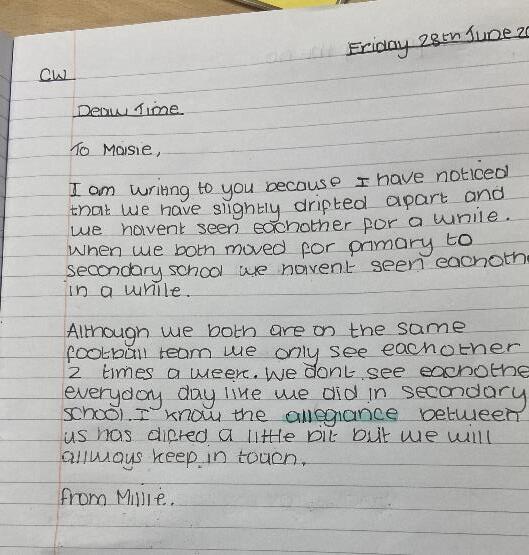 Friday 28th June 20
CW
Deaw Time
To Maisie,
I am writing to you because I have noticed
that we have slightly drifted apart and
we havent seen eachother for a while.
When we both moved for primary to
secondary school we havent seen eachothe
in a while.
Although we both are on the same
football team we only see eachother
2 times a week. We dont see eachothe
everyday day like we did in secondary
school. I know the allegiance between
us has difted a little bit but we will
allways keep in touch.
from Millie.